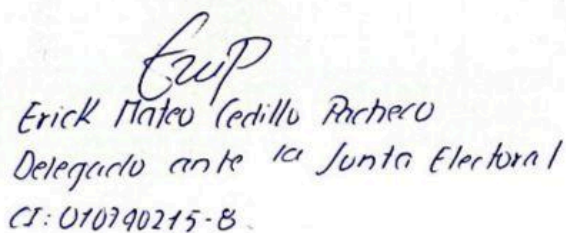 Erick Mateo Cedillo Pacheco
Delegado ante la Junta Electoral
CI: 010790215-8